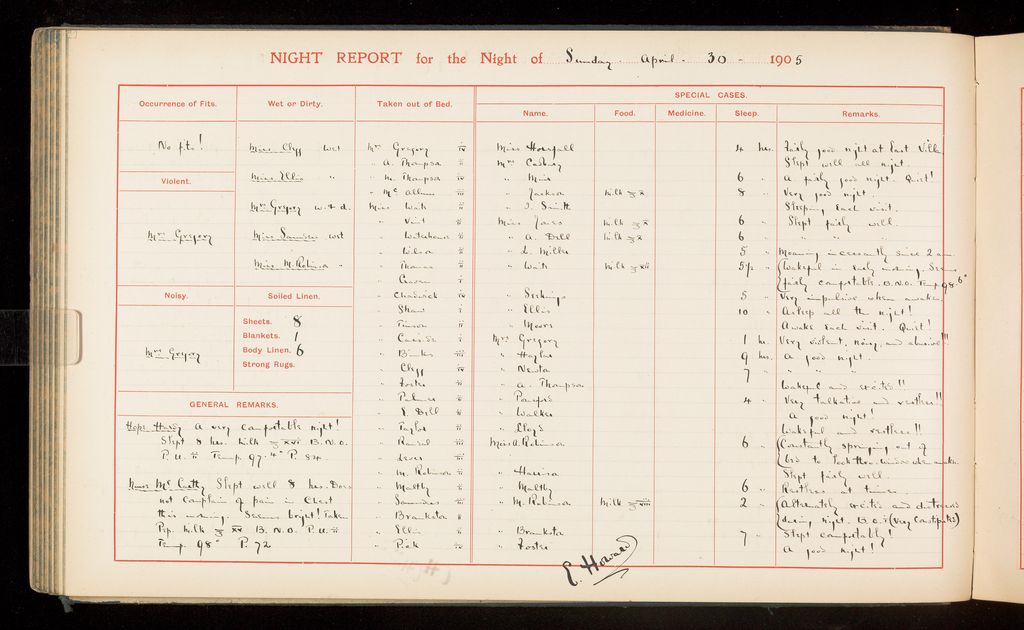 NIGHT REPORT for the Night of Sunday April 30 1905
Occurrence of Fits.
No fits!
Violent.
Mrs Gregory
Noisy.
Mrs Gregory
Wet or Dirty.
Miss Clegg wet
Miss Ellis "
Mrs Gregory w. & d.
Miss Saunders wet
Miss M. Robinson "
Soiled Linen.
Sheets. 8
Blankets. 1
Body Linen. 6
Strong Rugs.
GENERAL REMARKS.
A very comfortable night!
Slept 8 hrs. Milk B.N.O.
P.U. Temp. 97.4° P. 84.
Slept well 8 hrs. Does
not complain of pain in Chest
this morning. Seems bright! Taken
Pep. Milk B.N.O. P.U.
Temp. 98° P. 72
Taken out of Bed.
Mrs Gregory
" A. Thompson
" M. Thompson
" Mc Allum
Miss Waite
" Vint
" Waterhouse
" Wilson
" Thomas
" Craven
" Chadwick
" Shaw
"
"
" Binks
" Clegg
" Foster
" Palmer
" E. Dell
" Taylor
"
"
" M. Robinson
" Maltby
" Saunders
" Branksta
" Ellis
" Pick
SPECIAL CASES.
Name. Food. Medicine. Sleep. Remarks.
Miss Horsfall 4 hrs. Fairly good night at East Villa
Mrs Slept well all night.
" 6 " A fairly good night. Quiet!
" Jackson Milk 8 " Very good night
" J. Smith Sleeping each visit.
Miss Jones Milk 6 " Slept fairly well.
" A. Dell Milk 6 " " " "
" L. Miller 5 " Moaning incessantly since 2 am.
" Waite Milk 5½ " Wakeful in early morning. Seems
fairly comfortable. B.N.O. Temp 98.6°
" 5 " Very impulsive when awake.
" Ellis 10 " Asleep all the night!
" Moors Awake each visit. Quiet!
Mrs Gregory 1 hr. Very violent, noisy, and abusive!!!
" Hughes 9 hrs. A good night.
" 7 " " " "
" A. Thompson Wakeful and excited!!
" 4 " Very talkative and restless!!
" Walker A good night!
" Lloyd Wakeful and restless!!
Miss A. Robinson 6 " Constantly springing out of
bed to look thro. window when awake.
" Slept fairly well.
" Maltby 6 " Restless at times.
" M. Robinson Milk 2 " Alternately excited and distressed
during night. (Very constipated)
" Branksta 7 " Slept comfortably!
" Foster A good night!
E. Howard